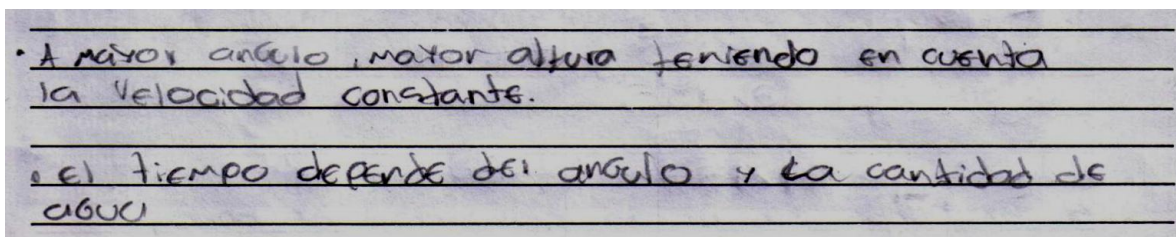 · A mayor angulo, mayor altura teniendo en cuenta
la velocidad constante.
· El tiempo depende del angulo y la cantidad de
agua